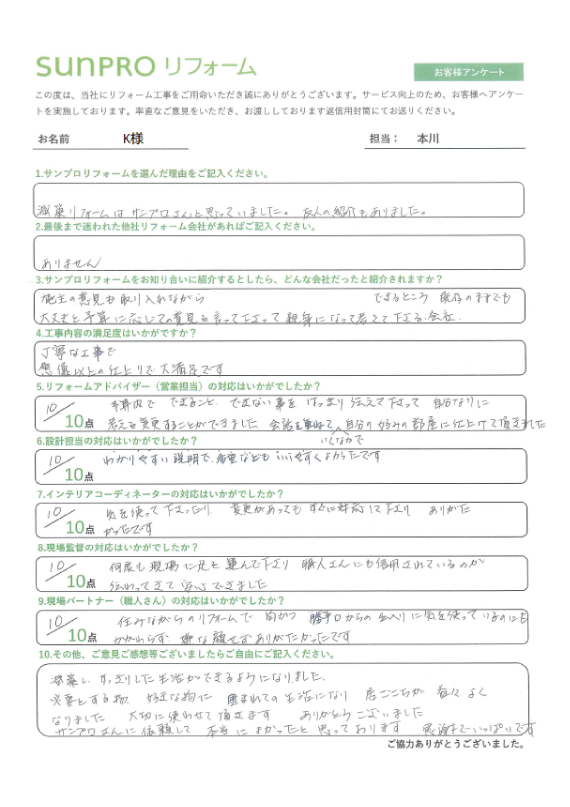 SUNPRO リフォーム
お客様アンケート
この度は、当社にリフォーム工事をご用命いただき誠にありがとうございます。サービス向上のため、お客様へアンケー
トを実施しております。率直なご意見をいただき、お渡ししております返信用封筒にてお送りください。
お名前 K様 担当： 本川
1.サンプロリフォームを選んだ理由をご記入ください。
減築リフォームは サンプロさんと思っていました。 友人の紹介もありました。
2.最後まで迷われた他社リフォーム会社があればご記入ください。
ありません
3.サンプロリフォームをお知り合いに紹介するとしたら、どんな会社だったと紹介されますか？
施主の意見も取り入れながら できるところ 既存のままでも
大丈夫と予算に応じての意見を言って下さって 親身になって考えて下さる会社.
4.工事内容の満足度はいかがですか？
丁寧な工事で
想像以上の仕上りで大満足です
5.リフォームアドバイザー（営業担当）の対応はいかがでしたか？
10/10点 予算内で できること、できない事を はっきり伝えて下さって 自分なりに
考えを変更することができました 会話を重ねて、自分の好みの部屋に仕上げて頂きました
6.設計担当の対応はいかがでしたか？
いくなかで
10/10点 わかりやすい説明で、希望なども いいやすくよかったです
7.インテリアコーディネーターの対応はいかがでしたか？
10/10点 気を使って下さったり 変更があっても すぐに対応して下さり ありがた
かったです
8.現場監督の対応はいかがでしたか？
10/10点 何度も現場に足を運んで下さり 職人さんにも信用されているのが
伝わってきて 安心できました
9.現場パートナー（職人さん）の対応はいかがでしたか？
10/10点 住みながらのリフォームで 勝手口からの出入りに気を使っているのにも
かかわらず 嫌な顔せずありがたかったです
10.その他、ご意見ご感想等ございましたらご自由にご記入ください。
減築し、すっきりした生活ができるようになりました.
必要とする物、好きな物に 囲まれての生活になり 居ごこちが 益々よく
なりました 大切に使わせて頂きます ありがとうございました
サンプロさんに依頼して 本当によかったと思っております 感謝でいっぱいです
ご協力ありがとうございました。